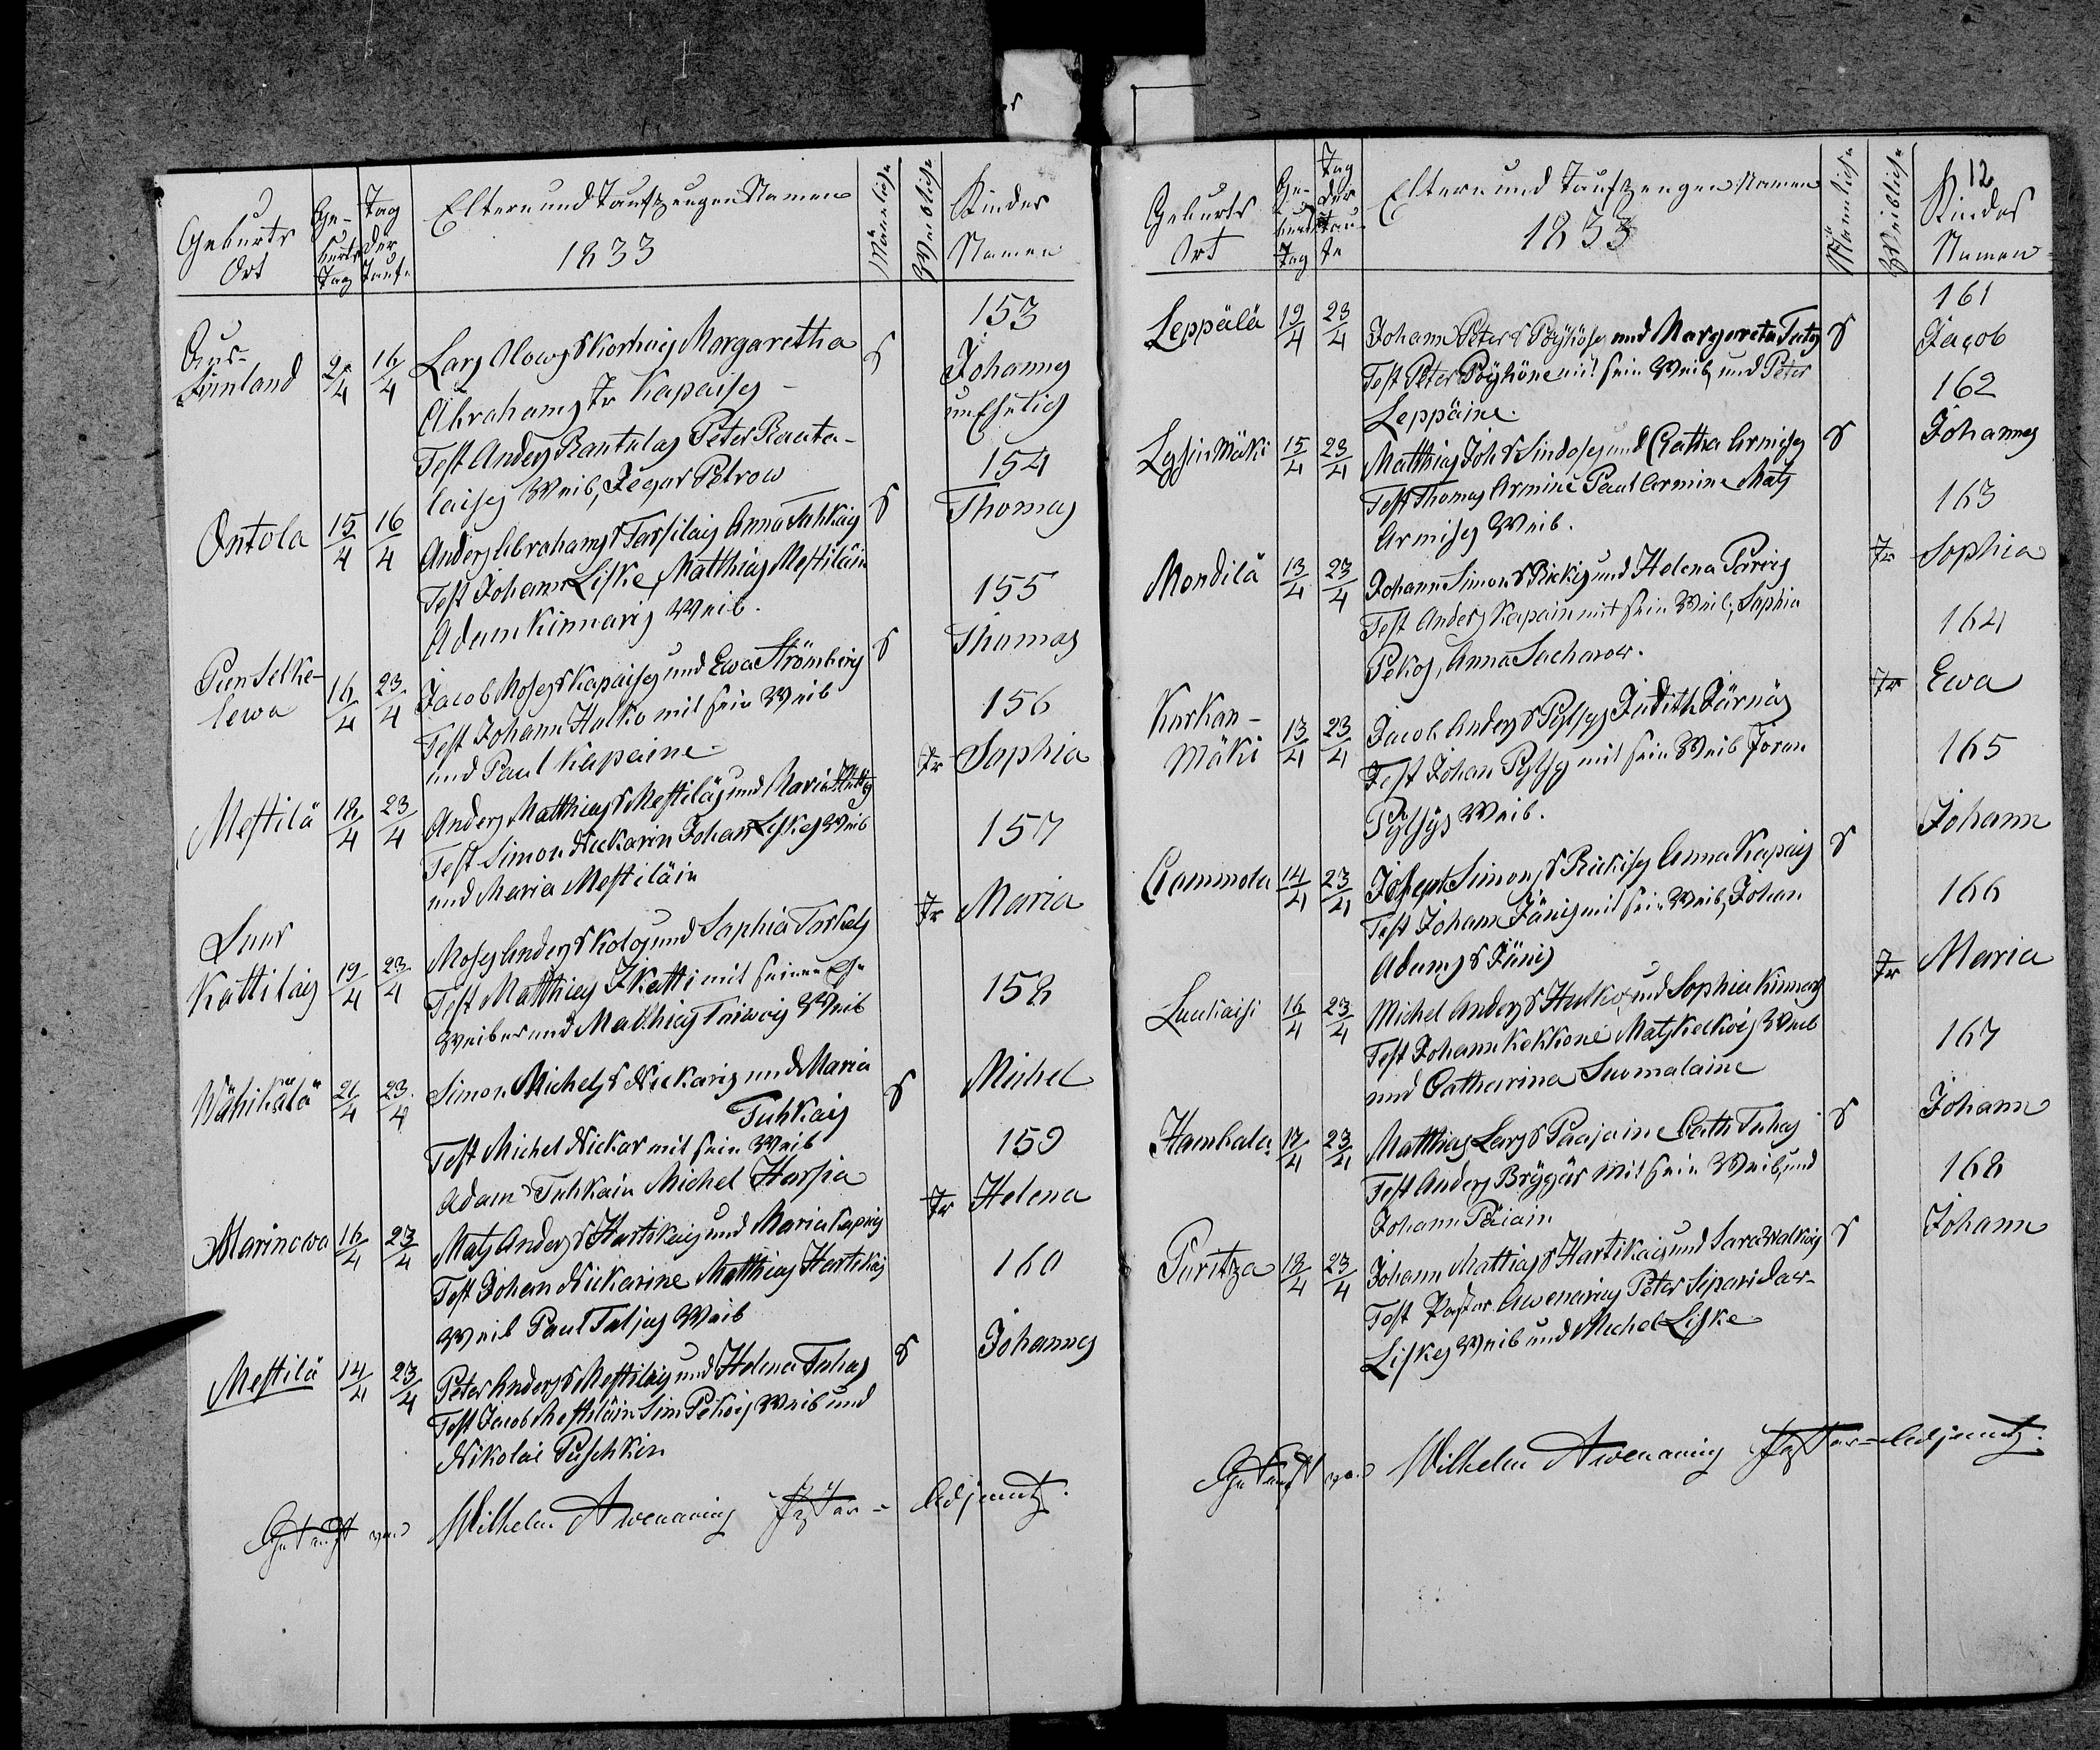 Geburts Ort
Geburts Tag
Tag der Taufe
Eltern und Taufzeugen Namen
1833
Männliche
Weibliche
Kinder Namen
153
Aus Finnland 2/4 16/4 Lars Olows S Korhois Margaretha S Johannes
Abrahams Tr Kapaises unEhelich
Test Anders Rantulas Peter Rauta-
laises Weib, Jegor Petrow
154
Ontola 15/4 16/4 Anders Abrahams S Tarsilais Anna Tuhkais S Thomas
Test Johann Liske, Matthias Mestiläin
Adam Kinnaris Weib.
155
Pien Selke-
lewa 16/4 23/4 Jacob Moses S Kapaises und Ewa Strömberg S Thomas
Test Johann Hulko mit sein Weib
und Paul Kapaine.
156
Mestilä 18/4 23/4 Anders Matthias S Mestiläs und Maria Tr Sophia
Test Simon Nickarin Johan Liskes Weib
und Maria Mestiläin
157
Suur
Kattilais 19/4 23/4 Moses Anders S Kolos und Sophia Torkels Tr Maria
Test Matthias Ikatti mit seinen
Weiber und Matthias Toiwois Weib
158
Wähikälä 21/4 23/4 Simon Michels S Nickaris und Maria S Michel
Tuhkais
Test Michel Nickar mit sein Weib
Adam Tuhkain Michel Harsia
159
Marinowa 16/4 23/4 Mats Anders S Hartikais und Maria Kapais Tr Helena
Test Johan Nickarine Matthias Hartikais
Weib Paul Taljas Weib
160
Mestilä 14/4 23/4 Peter Anders S Mestiläis und Helena Tuhas S Johannes
Test Jacob Mestiläin Sim Pekois Weib und
Nikolai Puschkin
Getauft von Wilhelm Awenarius Pastor-Adjunct.
12
Geburts Ort
Geburts Tag
Tag der Taufe
Eltern und Taufzeugen Namen
1833
Männliche
Weibliche
Kinder Namen
161
Leppälä 19/4 23/4 Johann Peter S Pöyhöses und Margareta Tatos S Jacob
Test Peter Pöyhöne mit sein Weib und Peter
Leppäine.
162
Lysinmäki 15/4 23/4 Matthias Joh S Sindoses und Catha Armises S Johannes
Test Thomas Armine Paul Armine Mats
Armises Weib.
163
Mondilä 13/4 23/4 Johann Simon S Rickis und Helena Päris Tr Sophia
Test Anders Kapain mit sein Weib, Sophia
Pekos, Anna Sacharow.
164
Kurkan-
mäki 13/4 23/4 Jacob Anders S Pylsys Judith Järnäs Tr Ewa
Test Johan Pylsy mit sein Weib Joran
Pylsys Weib.
165
Cammola 14/4 23/4 Simons S Rickises Anna Kapais S Johann
Test Johann Jänis mit sein Weib, Johan
Adams S Jänis
166
Luukaisi 16/4 23/4 Michel Anders S Hulko und Sophia Kinnars Tr Maria
Test Johann Kekkone Mats Kekkois Weib
und Catharina Suomalaine
167
Hambala 17/4 23/4 Matthias Lars S Paajaine Cath Tuhas S Johann
Test Anders Bryggär mit sein Weib, und
Johann Päiain
168
Puritza 18/4 23/4 Johann Mattias S Hartikais und Sara Walkois S Johann
Test Pastor Awenarius Peter Siparidaw-
Liskes Weib und Michel Liske
Getauft von Wilhelm Awenarius Pastor-Adjunct.